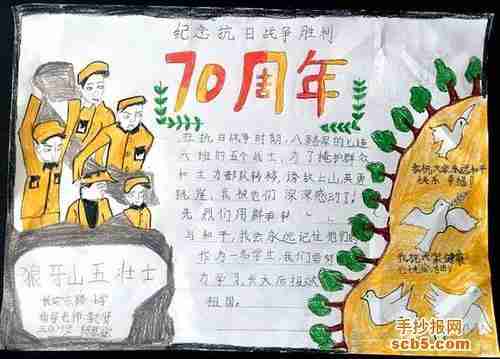 纪念抗日战争胜利
70周年
在抗日战争时期,八路军的七连
六班的五个战士,为了掩护群众
和主力部队转移,诱敌上山,英勇
跳崖,我被他们深深感动了!
先烈们用鲜
与和平,我会永远记住他们的
作为一名学生,我们要努
力学习,长大后报效
祖国。
狼牙山五壮士
小学
指导老师:
我祝大家永远和平
快乐幸福!
我祝大家健康
手抄报网
scb5.com